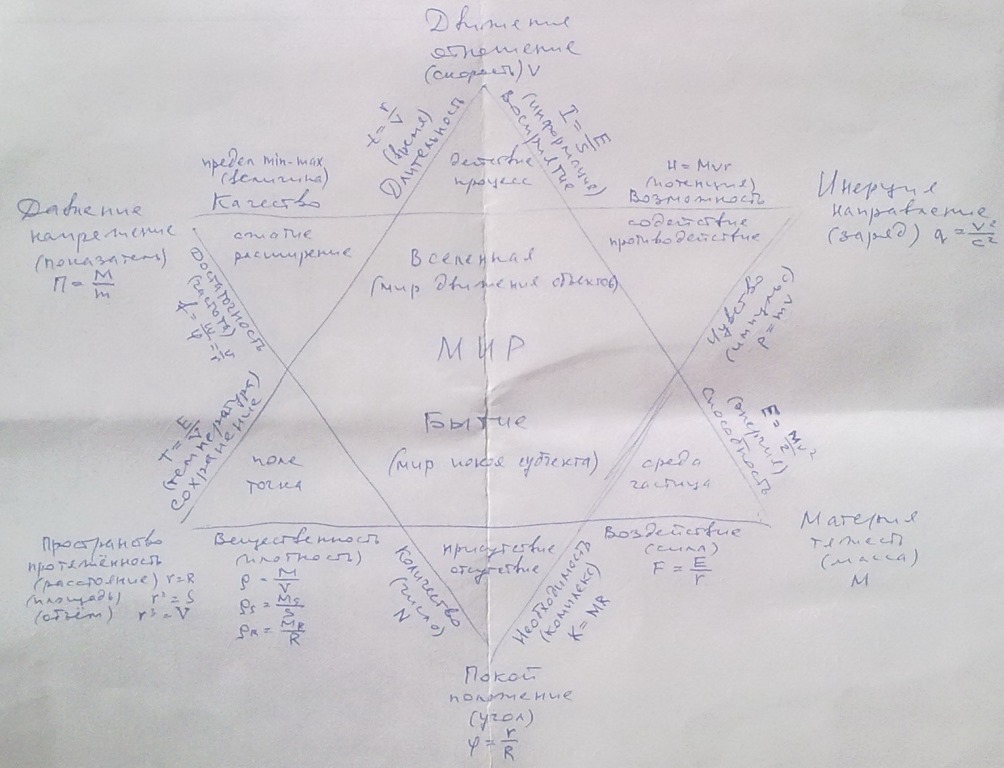 Движение
отношение
(скорость) V
t = r/V
(время)
Длительность
I = E/S
(информация)
Восприятие
действие
процесс
предел min-max
(величина)
Качество
H = Mvr
(потенция)
Возможность
Давление
напряжение
(показатель)
П = M/m
Инерция
направление
(заряд) q = v²/c²
сжатие
расширение
содействие
противодействие
Вселенная
(мир движения объектов)
Достаточность
(частота)
f = ω/φ = v/r
Чувство
(импульс)
P = mv
МИР
Бытие
(мир покоя субъекта)
T = E/V
(температура)
Сохранение
E = Mv²/2
(энергия)
Способность
поле
точка
среда
частица
Пространство
протяжённость
(расстояние) r = R
(площадь) r² = S
(объём) r³ = V
Вещественность
(плотность)
ρ = M/V
ρs = Ms/S
ρR = MR/R
Количество
(число)
N
присутствие
отсутствие
Необходимость
(комплекс)
K = MR
Воздействие
(сила)
F = E/r
Материя
тяжесть
(масса)
M
Покой
положение
(угол)
φ = r/R